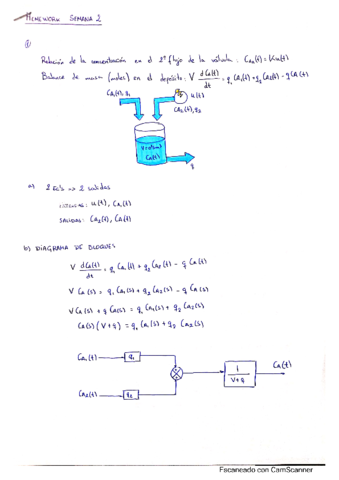 HOMEWORK SEMANA 2
①
Relación de la concentración en el 2º flujo de la válvula: Ca₂(t) = K u(t)
Balance de masa (moles) en el depósito: V dCa(t)/dt = q₁ Ca₁(t) + q₂ Ca₂(t) - q Ca(t)
Ca₁(t), q₁
u(t)
Ca₂(t), q₂
Ca(t)
q
a) 2 Ec's → 2 salidas
ENTRADAS: u(t), Ca₁(t)
SALIDAS: Ca₂(t), Ca(t)
b) DIAGRAMA DE BLOQUES
V dCa(t)/dt = q₁ Ca₁(t) + q₂ Ca₂(t) - q Ca(t)
V Ca(s) = q₁ Ca₁(s) + q₂ Ca₂(s) - q Ca(s)
V Ca(s) + q Ca(s) = q₁ Ca₁(s) + q₂ Ca₂(s)
Ca(s) (V+q) = q₁ Ca₁(s) + q₂ Ca₂(s)
Ca₁(t) q₁
1/(V+q) Ca(t)
Ca₂(t) q₂
Escaneado con CamScanner